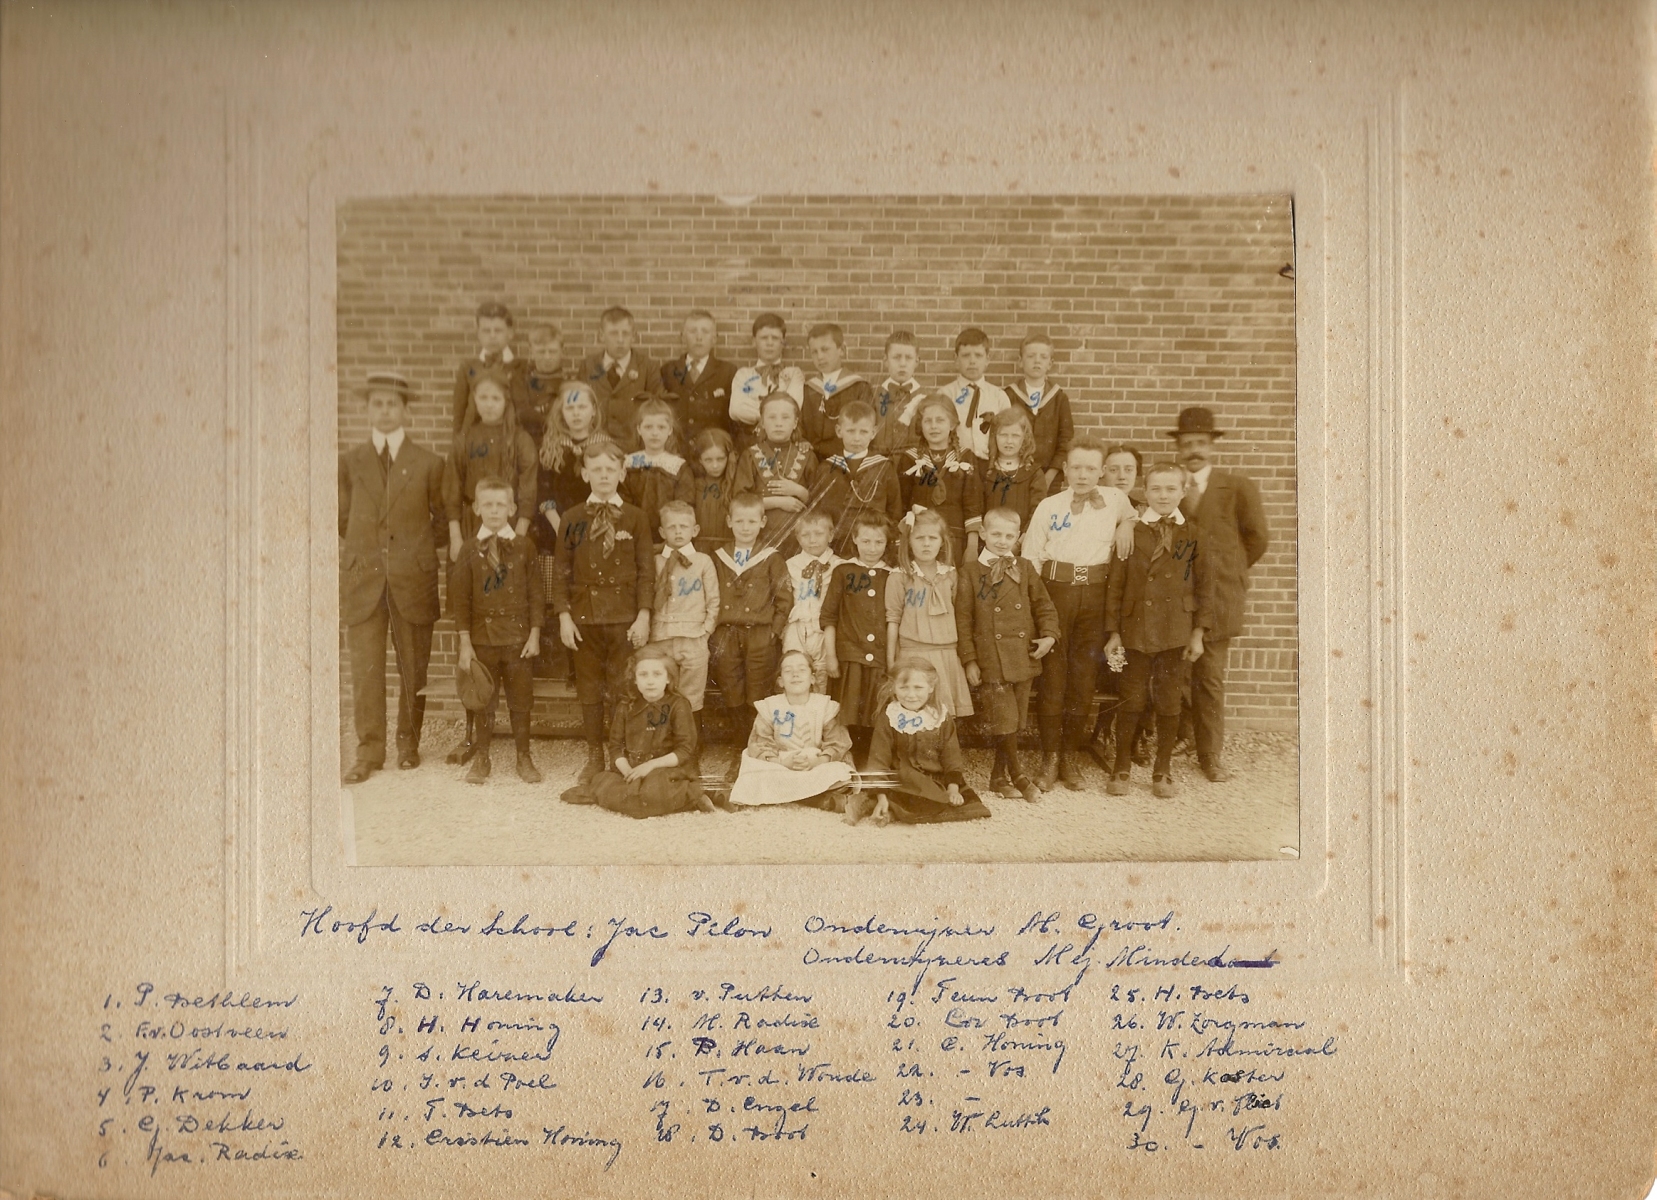 Hoofd der School: Jac Pilon Onderwijzer M. Groot.
Onderwijzeres Mej. Minder
1. P. Bethlem
2. F.v. Oostveen
3. J. Witbaard
4. P. Krom
5. G. Dekker
6. Jac. Radix
7. D. Haremaker
8. H. Honing
9. S. Keizer
10. J. v. d Poel
11. T. Bets
12. Cristien Honing
13. v. Putten
14. M. Radix
15. B. Haan
16. T. v. d. Woude
17. D. Engel
18. D. Boot
19. Teun Boot
20. Cor Boot
21. C. Honing
22. - Vos
23. -
24. W.
25. H. Bets
26. W. Zorgman
27. K. Admiraal
28. G. Koster
29. G. v. Vliet
30. - Vos.